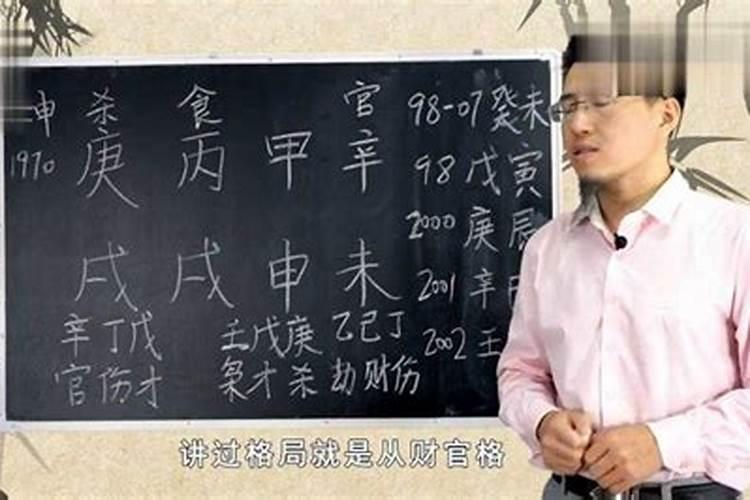 杀 食 官
坤 庚 丙 甲 辛
1970
戌 戌 申 未
辛丁戊 壬戊庚 乙己丁
官伤才 枭才杀 劫财伤
98-07 癸未
98 戊寅
2000 庚辰
2001 辛
2002 壬
讲过格局就是从财官格